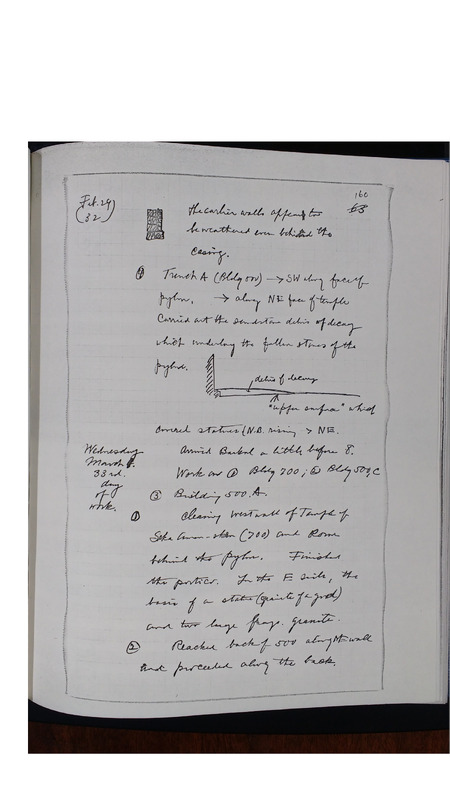 160
63
Feb. 29
(32)
the earlier walls appear to
be weathered even behind the
casing.
Trench A (Bldg 500) → SW along face of
pylon, → along NE face of temple
Carried out the sandstone debris of decay
which underlay the fallen stones of the
pylon.
debris of decay
"upper surface" which
covered statues (N.B. rising > NE.
Wednesday
March 1.
33rd.
day
of
work.
Arrived Barkal a little before 8.
Work on ① Bldg 700; ② Bldg 500, C
③ Building 500. A.
① Clearing west wall of Temple of
(700) and Room
behind the pylon. Finished
the portico. In the E side, the
basis of a statue (granite of a god)
and two large frags. granite.
② Reached back of 500 along wall
and proceeded along the back.